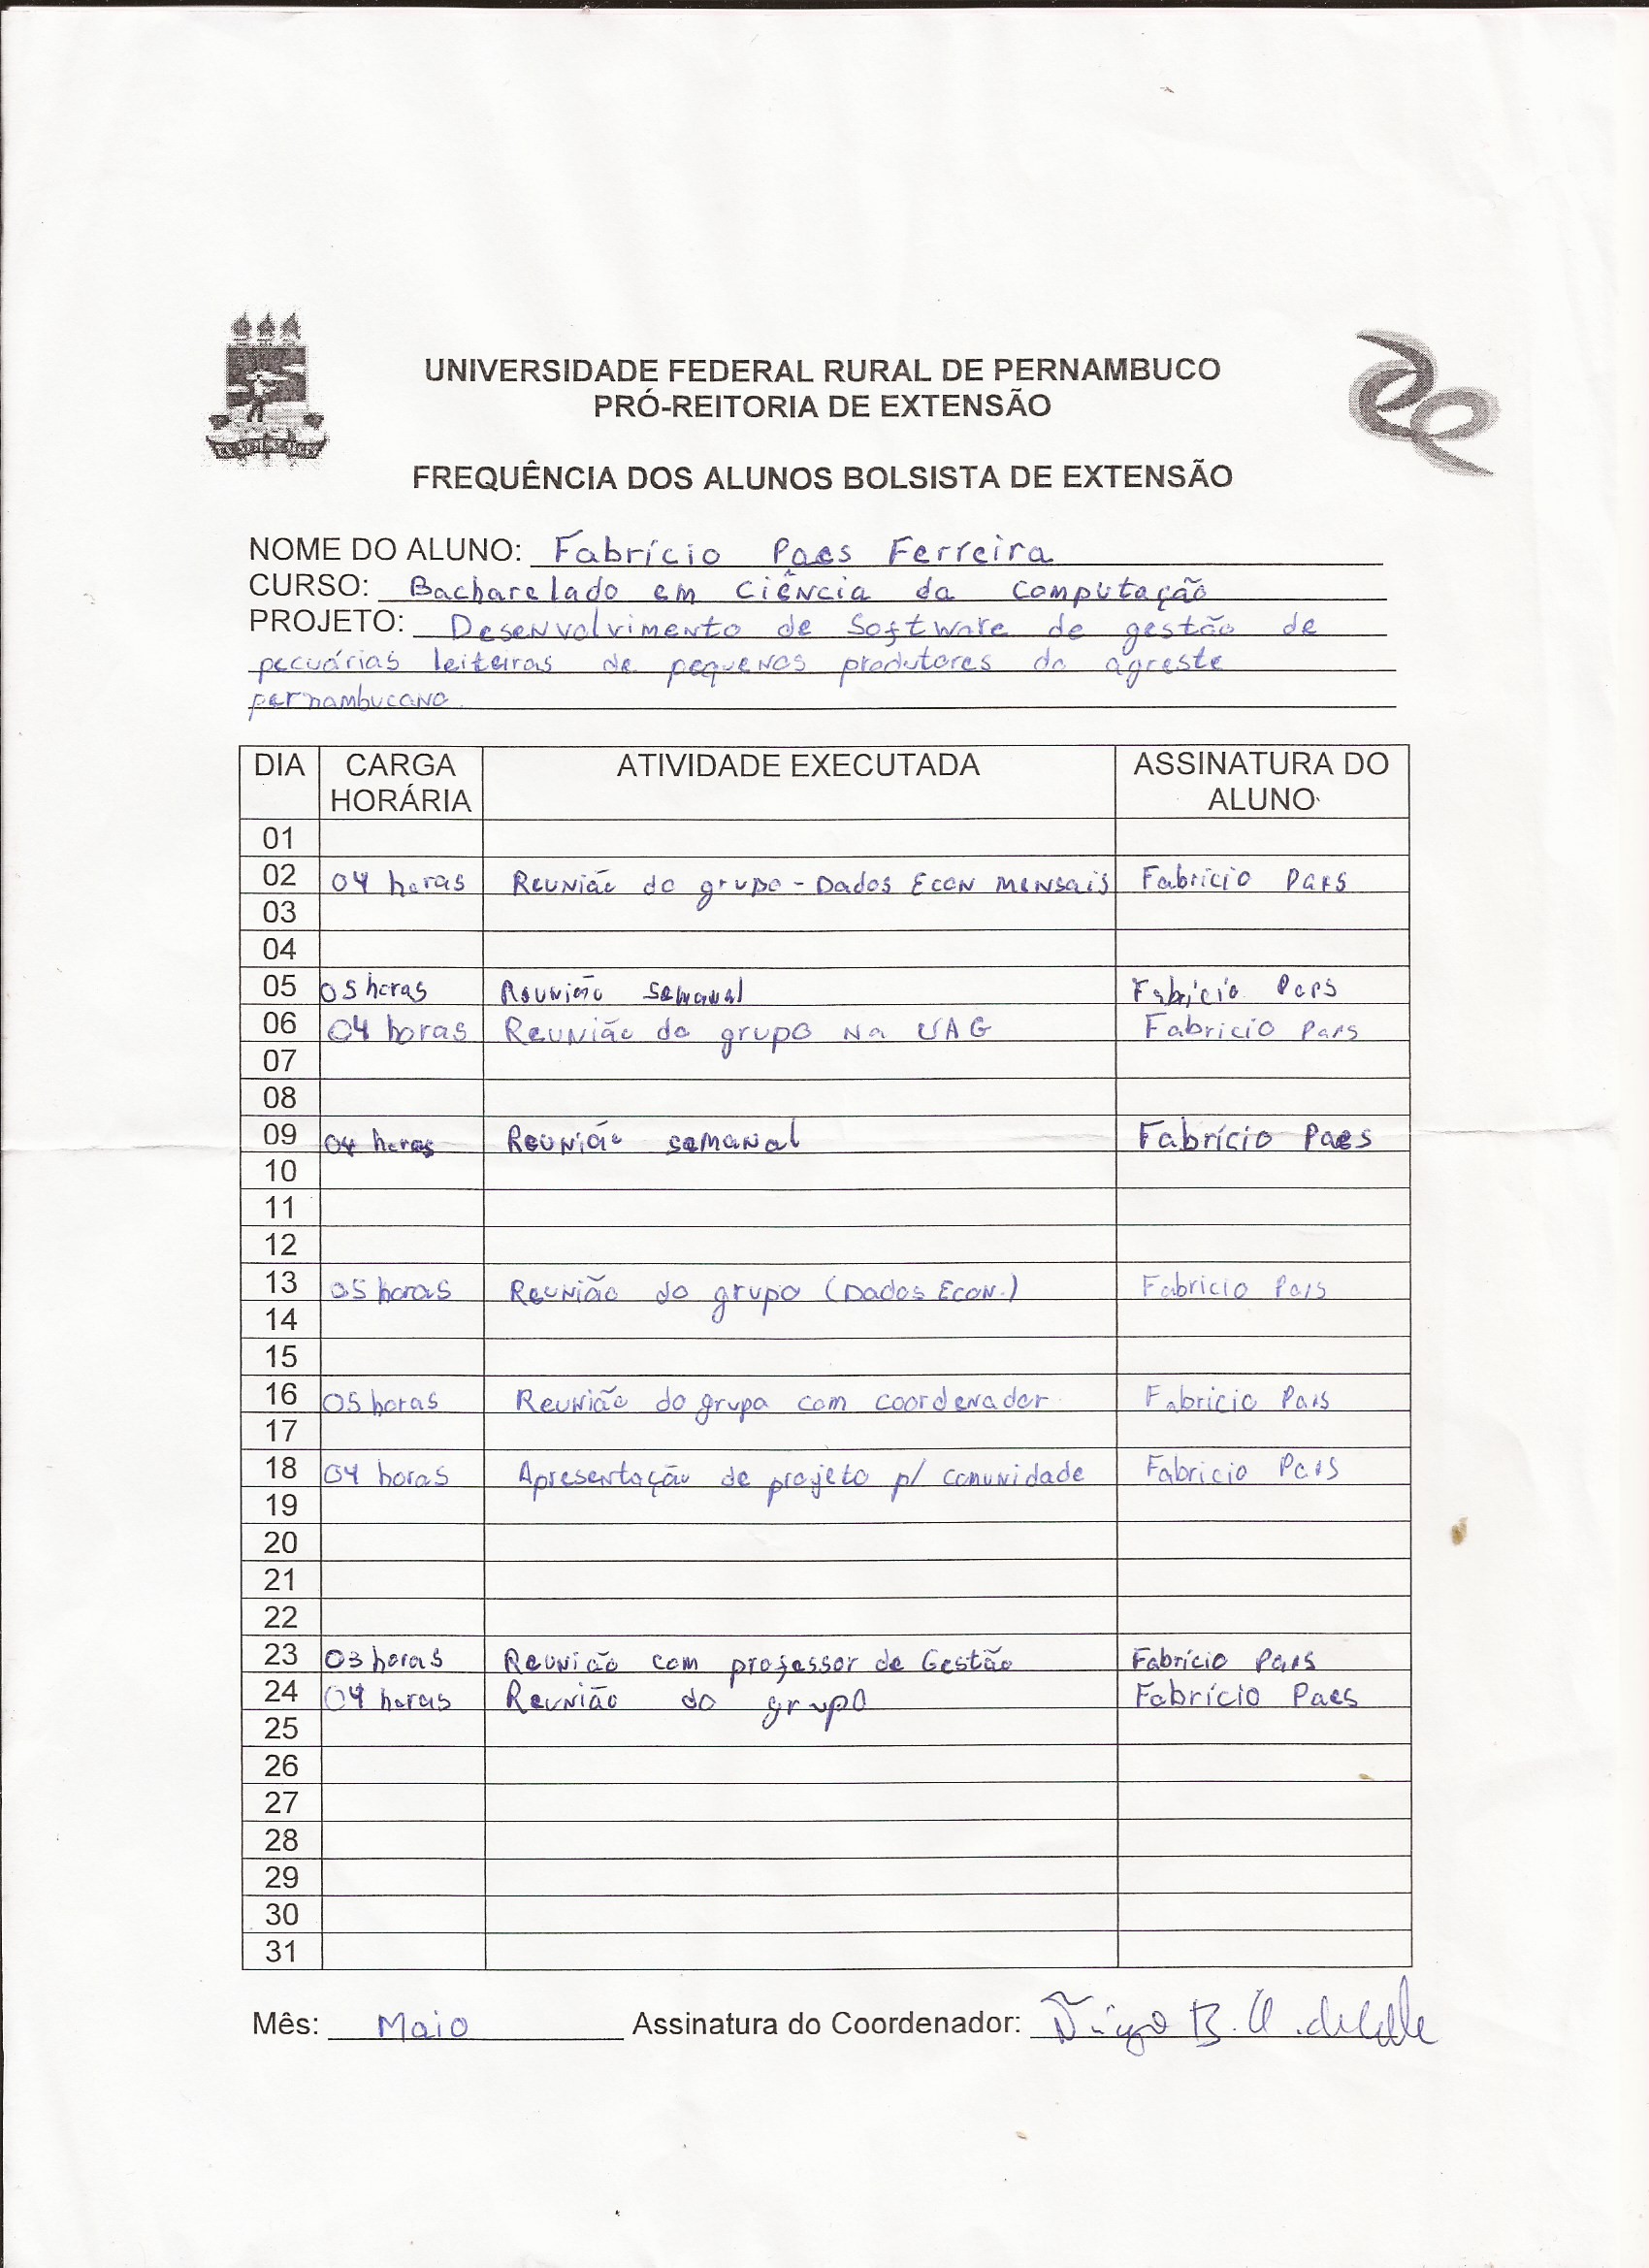 UNIVERSIDADE FEDERAL RURAL DE PERNAMBUCO
PRÓ-REITORIA DE EXTENSÃO
FREQUÊNCIA DOS ALUNOS BOLSISTA DE EXTENSÃO
NOME DO ALUNO: Fabrício Paes Ferreira
CURSO: Bacharelado em Ciência da Computação
PROJETO: Desenvolvimento de Software de gestão de
pecuárias leiteiras de pequenos produtores do agreste
pernambucano
DIA CARGA HORÁRIA ATIVIDADE EXECUTADA ASSINATURA DO ALUNO
01
02 04 horas Reunião do grupo - Dados Econ mensais Fabricio Paes
03
04
05 05 horas Reunião semanal Fabricio Paes
06 04 horas Reunião do grupo na UAG Fabricio Paes
07
08
09 04 horas Reunião semanal Fabrício Paes
10
11
12
13 05 horas Reunião do grupo (Dados Econ.) Fabricio Paes
14
15
16 05 horas Reunião do grupo com coordenador Fabricio Paes
17
18 04 horas Apresentação de projeto p/ comunidade Fabricio Paes
19
20
21
22
23 03 horas Reunião com professor de Gestão Fabrício Paes
24 04 horas Reunião do grupo Fabrício Paes
25
26
27
28
29
30
31
Mês: Maio Assinatura do Coordenador: